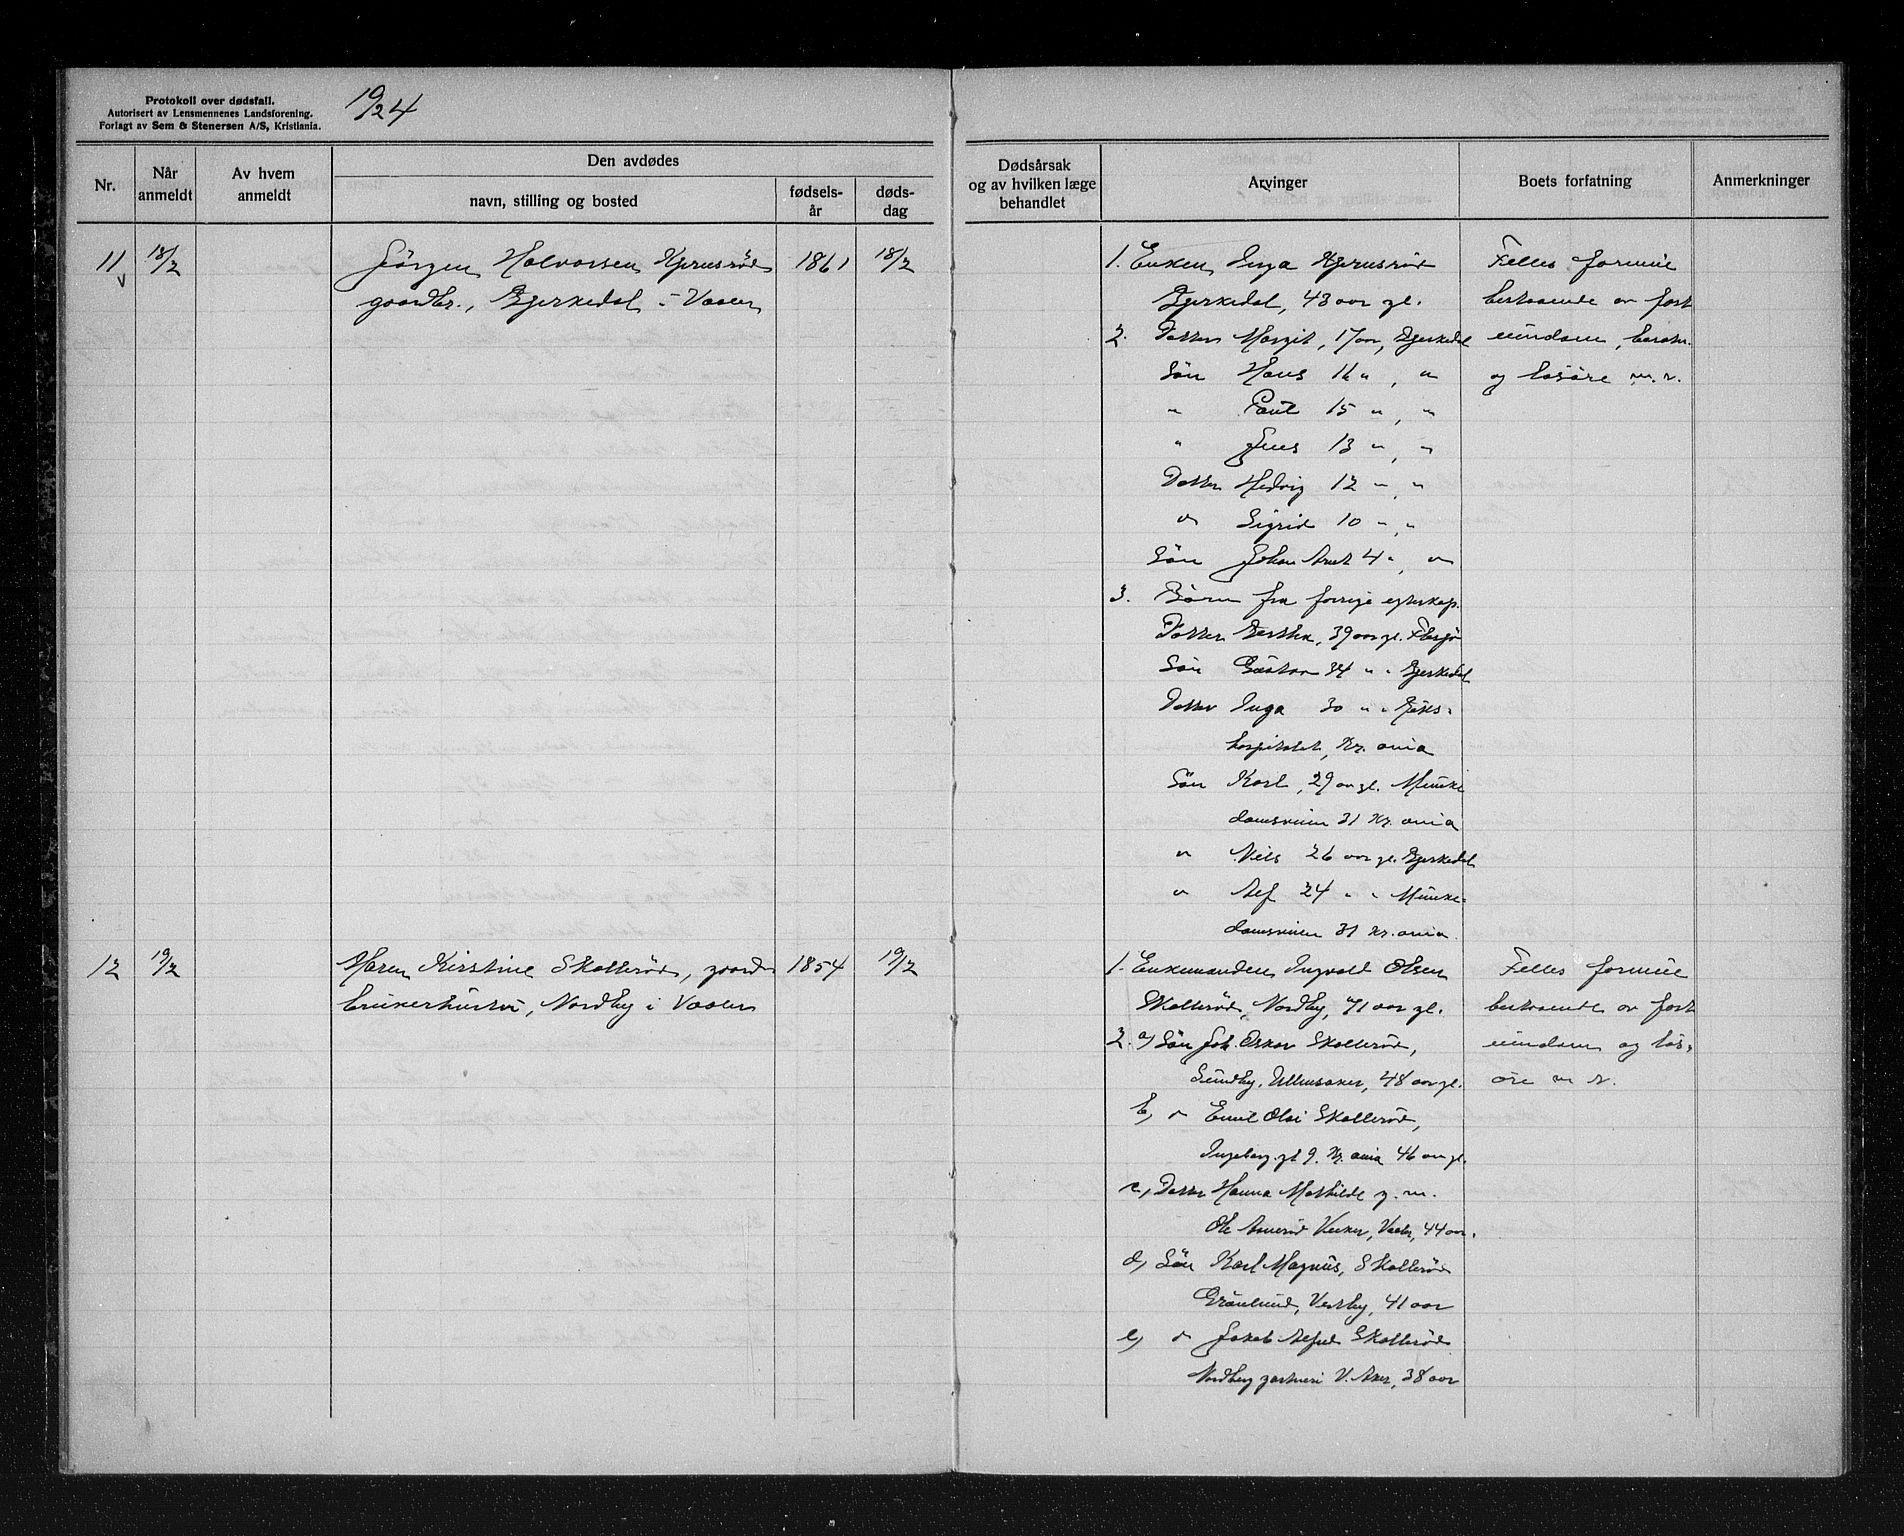 Protokoll over dødsfall.
Autorisert av Lensmennenes Landsforening.
Forlagt av Sem & Stenersen A/S, Kristiania.
1924
Nr.
Når anmeldt
Av hvem anmeldt
Den avdødes
navn, stilling og bosted
fødsels-år
døds-dag
Dødsårsak og av hvilken læge behandlet
Arvinger
Boets forfatning
Anmerkninger
11 18/2 Jörgen Halvorsen 1861 18/2
gaardbr., Bjerkedal i Vaaler
1. Enken Inga
Bjerkedal, 43 aar gl.
2. Datter Margit, 17 aar, Bjerkedal
Sön Hans 16 " , "
" Paul 15 " , "
" Jens 13 " , "
Datter Hedvig 12 " , "
" Sigrid 10 " , "
Sön Johan 4 " , "
3. Börn fra forrige egteskap.
Datter 39 aar gl.
Sön Gustav 34 " " Bjerkedal
Datter Inga 30 " "
hospitalet, Kr.ania
Sön Karl, 29 aar gl. Munke
damsveien 31 Kr.ania
" Nils 26 aar gl. Bjerkedal
" Alf 24 " " Munke-
damsveien 31 Kr.ania
Felles formue
bestaaende av fast
eiendom,
og lösöre m.v.
12 19/2 Maren Kirstine Skallerød, gaard- 1854 19/2
brukerhustru, Nordby i Vaaler
1. Enkemanden Ingvald Olsen
Skallerød, Nordby, 71 aar gl.
2. a) Sön Joh. Oskar Skallerød,
Sundby, Ullensaker, 48 aar gl.
b) " Emil Olai Skallerød,
Ingeborg.gt 9. Kr.ania 46 aar gl.
c) Datter Hanna Mathilde g.m.
Ole Vaaler, 44 aar.
d) Sön Karl Magnus, Skallerød
Grönlund, Vestby, 41 aar
e) " Jakob Alfred Skallerød
Nordberg gartneri V. Aker, 38 aar
Felles formue
bestaaende av fast
eiendom og lös-
öre m.v.